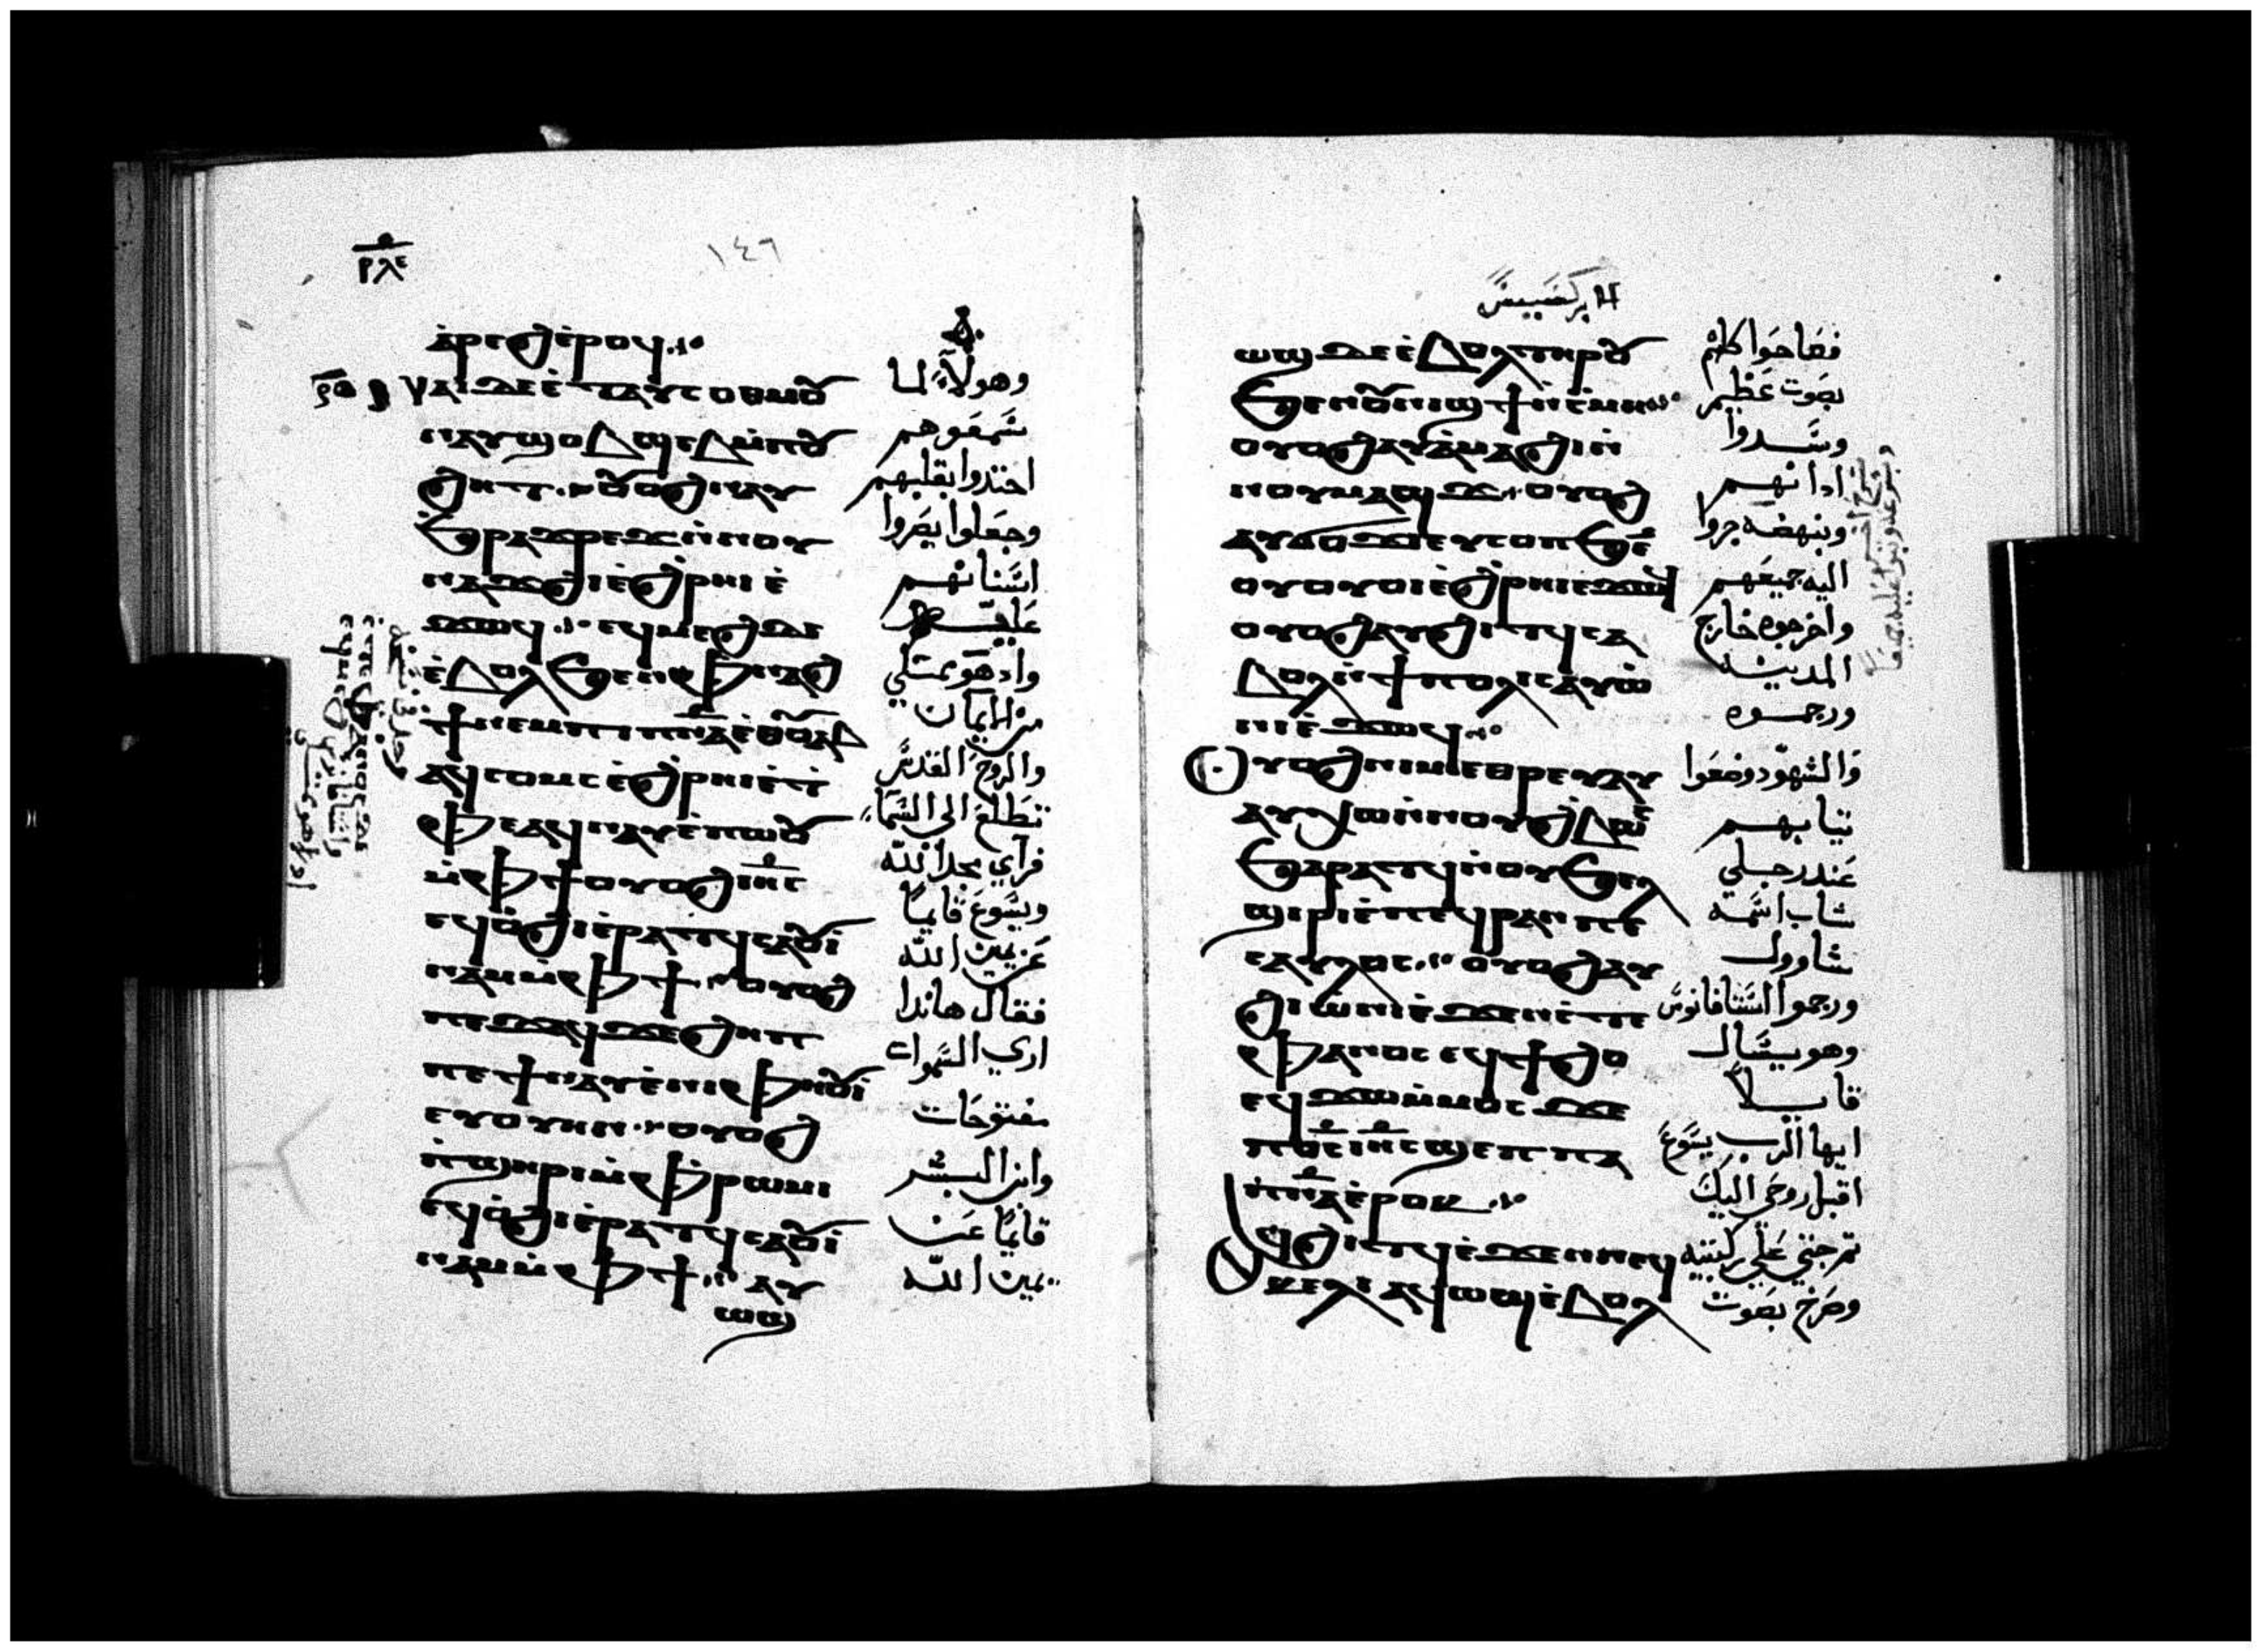 ⲣⲗⲉ
١٤٦
ⲁⲣⲉϩ ⲉⲣⲟϥ
ⲛⲁⲓ ⲇⲉ ⲉⲧⲁⲩⲥⲟⲑⲙⲟⲩ
ⲛⲁⲩϣⲟⲃϣⲉⲃ ⲙ̀ⲡⲟⲩ
ϩⲏⲧ · ⲟⲩⲟϩ ⲛⲁⲩ
ϧⲣⲁϫⲣⲉϫ ⲛ̀ⲛⲟⲩ
ⲛⲁϫϩⲓ ⲉ̀ϩⲣⲏⲓ ⲉ̀
ϫⲱϥ ⁘ ⲉϥⲙⲉϩ ⲇⲉ
ⲉ̀ⲃⲟⲗ ϧⲉⲛ ⲫⲛⲁϩ
ϯ ⲛⲉⲙ ⲡⲓⲡⲛⲁ ⲉ̀ⲑⲟⲩⲁⲃ
ⲁϥⲥⲟⲙⲥ ⲉ̀ϩⲣⲏⲓ ⲉ̀ⲧ
ⲫⲉ ⲁϥⲛⲁⲩ ⲉ̀ⲡⲱⲟⲩ
ⲙ̀ⲫϯ ⲟⲩⲟϩ ⲓⲏⲥ
ⲉϥⲟ̀ϩⲓ ⲉ̀ⲣⲁⲧϥ ⲥⲁⲟⲩⲓ̀
ⲛⲁⲙ ⲙ̀ⲫϯ · ⲟⲩⲟϩ
ⲡⲉϫⲁϥ ϫⲉ ϩⲏⲡⲡ
ⲡⲉ ϯⲛⲁⲩ ⲉ̀ⲛⲓⲫⲏⲟⲩⲓ̀
ⲉⲩⲟⲩⲏⲛ · ⲟⲩⲟϩ
ⲡ̀ϣⲏⲣⲓ ⲙ̀ⲫⲣⲱⲙⲓ
ⲉϥⲟ̀ϩⲓ ⲉ̀ⲣⲁⲧϥ ⲥⲁⲟⲩⲓ̀
ⲛⲁⲙ ⲙ̀ⲫϯ ⁘ ⲁⲩ
ⲱϣ
وهولاء لما
سمعوهم
احتدوا بقلبهم
وجعلوا يصروا
اسنانهم
عليه
واد هو ممتلي
من الايمان
والروح القدس
تطلع الى السما
فراي مجد الله
ويسوع قايما
عن يمين الله
فقال هاندا
اري السموات
مفتوحات
وابن البشر
قايما عن
يمين الله
الابركسيس
ⲱϣ ⲇⲉ ⲉ̀ⲃⲟⲗ ⲧⲏⲣⲟⲩ
ϧⲉⲛ ⲟⲩⲛⲓϣϯ ⲛ̀ⲥⲙⲏ
ⲟⲩⲟϩ ⲁⲩⲁ̀ⲙⲁϩⲓ ⲛ̀
ⲛⲟⲩⲙⲁϣϫ · ⲟⲩⲟϩ
ⲁⲩϭⲟϫⲓ ⲉⲩⲥⲟⲡ ϧⲉ
ⲟⲩⲟⲩⲟⲓ ⲉ̀ϩⲣⲏⲓ ⲉϫⲱϥ
ⲟⲩⲟϩ ⲁⲩϩⲓⲧϥ ⲥⲁ
ⲃⲟⲗ ⲛ̀ϯⲡⲟⲗⲓⲥ ⲁⲩⲱ
ⲛⲓ ⲉ̀ϫⲱϥ ⁘
ⲟⲩⲟϩ ⲛⲓⲙⲉⲑⲣⲉⲩ ⲁⲩ
ⲁⲩⲭⲱ ⲛ̀ⲛⲟⲩϩⲃⲱⲥ
ϧⲁⲣⲁⲧϥ ⲛ̀ⲟⲩϧⲉⲗ
ϣⲓⲣⲓ ⲉ̀ⲡⲉϥⲣⲁⲛ ⲡⲉ
ⲥⲁⲩⲗⲟⲥ ⁘ ⲟⲩⲟϩ ⲁⲩ
ϩⲓⲱ̀ⲛⲓ ⲉ̀ϫⲉⲛ ⲥ̀ⲧⲉ
ⲫⲁⲛⲟⲥ ⲉϥϯϩⲟ
ⲉϥϫⲱ ⲙ̀ⲙⲟⲥ ϫⲉ
ⲡⲟⲥ ⲓⲏⲥ ϣⲉⲡ ⲡⲁ
ⲡⲛⲁ ⲉ̀ⲣⲟⲕ ⁘
ⲁϥϩⲓⲧϥ ⲉ̀ϫⲉⲛ ⲛⲉϥ
ⲕⲉⲗⲓ ⲁϥⲱϣ ⲉ̀ⲃⲟⲗ
فصاحوا كلهم
بصوت عظيم
وسدوا
ادانهم
وبنهضه جروا
اليه جميعهم
واخرجوه خارج
المدينه
ورجموه
والشهود وضعوا
تيابهم
عند رجلي
شاب اسمه
شاوول
ورجموا استافانوس
وهو يسال
قايلا
ايها الرب يسوع
اقبل روحي اليك
تم جتي علي ركبتيه
وصرخ بصوت